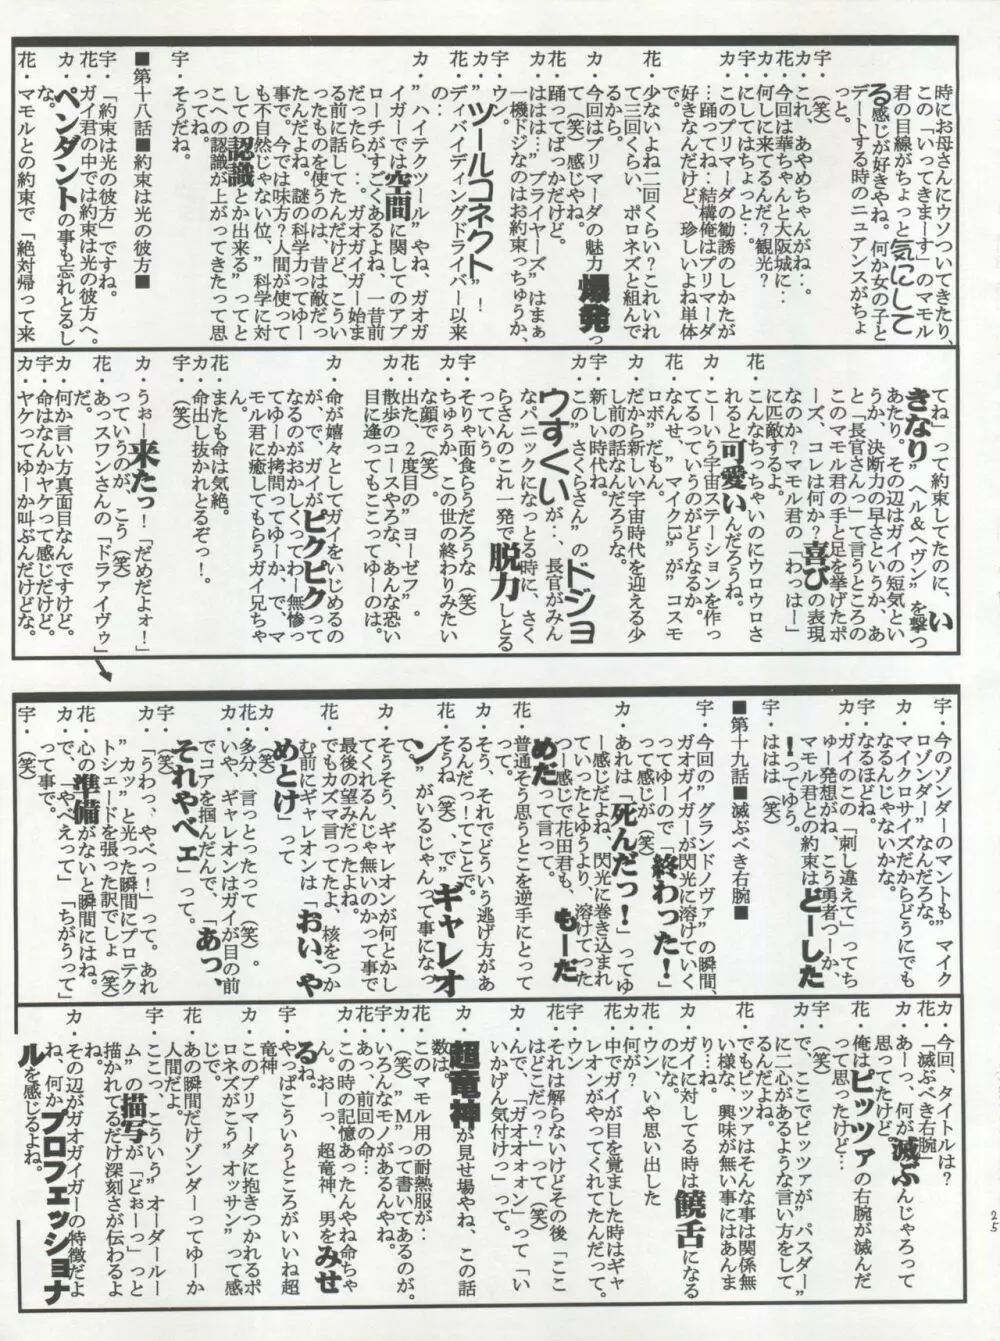 時にお母さんにウソついてきたり、
この「いってきまーす」のマモル
君の目線がちょっと気にして
る感じが好きやね。何か女の子と
デートする時のニュアンスがちょ
っと。
宇・(笑)
カ・これ、あやめちゃんがね‥。
花・今回は華ちゃんと大阪城に‥
カ・何しに来てるんだ?観光?
宇・にしてはちょっと‥。
カ・このプリマーダの勧誘のしかたが
…踊ってね‥結構俺はプリマーダ
好きなんだけど、珍しいよね単体
で三回くらい、ポロネズと組んで
花・少ないよね二回くらい?これいれ
るから。
カ・今回はプリマーダの魅力爆発っ
て(笑)感じやね。
花・踊ってばっかだけど。
カ・ははは…”プライヤーズ”はまぁ
一機ドジなのはお約束っちゅうか、
宇・ウン。
カ・”ツールコネクト”!
花・ディバイディングドライバー以来
の‥
カ・”ハイテクツール”やね、ガオガ
イガーでは空間に関してのアプ
ローチがすごくあるよね、一昔前
だったら、‥。ガオガイガー始ま
る前に話してたんだけど、こうい
ったものを使うのは、昔は敵だっ
たんだよね。謎の科学力ってゆー
事で。今では味方?人間が使って
も不自然じゃない位、”科学に対
しての認識とか出来る”ってと
こへの認識が上がってきたって思
ってね。
宇・そうだね。
■第十八話■約束は光の彼方■
宇・「約束は光の彼方」ですね。
花・ガイ君の中では約束は光の彼方へ。
カ・ペンダントの事も忘れとるし
な。
花・マモルとの約束で「絶対帰って来
てね」って約束してたのに、い
きなり”ヘル&ヘヴン”を撃つ
あたり。その辺はガイの短気とい
うか、決断力の早さというか、あ
と「長官さんっ」て言うところの
このマモル君の手と足を挙げたポ
ーズ、コレは何か?喜びの表現
なのか?マモル君の「わっはー」
に匹敵するよ。
花・こんなちっちゃいのにウロウロさ
れると可愛いんだろうね。
カ・こーいう宇宙ステーションを作っ
てるっていうのがどうなるか。
花・なんせ、”マイク13”が”コスモ
ロボ”だもん。
カ・だから新しい宇宙時代を迎える少
し前の話なんだろうな。
宇・新しい時代ね。
カ・この”さくらさん”のドジョ
ウすくいが‥、長官がみん
なパニックになっとる時に、さく
らさんのこれ一発で脱力しとる
っていう。
宇・そりゃ面食らうだろうな(笑)
カ・ちゅうか、この世の終わりみたい
な顔で(笑)。
花・出た、2度目の”ヨーゼフ”。
カ・散歩のコースやろな、あんな恐い
目に逢ってもここってゆーのは。
カ・命が嬉々としてガイをいじめるの
が、で、ガイがピクピクって
なるのがおかしくってわー無惨っ
てゆーか拷問ってゆーか、で、マ
モル君に癒してもらうガイ兄ちゃ
ん。
花・またも命は気絶。
カ・命出し抜かれとるぞっ!。
宇・(笑)
カ・うぉー来たっ!「だめだよォ!」
っていうのが、こう(笑)
花・あっスワンさんの「ドラァイヴゥ」
だ。
カ・何か言い方真面目なんですけど。
花・命はなんかヤケって感じだけど。
カ・ヤケってゆーか叫ぶんだけどな。
宇・今のゾンダーのマントも”マイク
ロゾンダー”なんだろな。
カ・マイクロサイズだからどうにでも
なるんじゃないかな。
花・なるほどね。
カ・ガイのこの「刺し違えて」ってち
ゅー発想がね、こう勇者つーか、
マモル君との約束はどーした
!ってゆう。
宇・ははは(笑)
■第十九話■滅ぶべき右腕■
宇・今回の”グランドノヴァ”の瞬間、
ガオガイガーが閃光に溶けていく
ってゆーので「終わった!」
って感じが(笑)
カ・あれは「死んだっ!」ってゆ
ー感じだよね、閃光に巻き込まれ
ていったとゆうより、溶けてった
つー感じで花田君も、もーだ
めだって言って。
花・普通そう思うとこを逆手にとって
カ・そう、それでどういう逃げ方があ
るんだっ!てことで。
花・そうね(笑)、で”ギャレオ
ン”がいるじゃんって事になっ
て、
カ・そうそう、ギャレオンが何とかし
てくれるんじゃ無いのかって事で
最後の望みだったよね。
花・でもカズマ言ってたよ、核をつか
む前にギャレオンは「おい、や
めとけ」って
カ・(笑)
花・多分、言っとったって(笑)。
カ・いや、ギャレオンはガイが目の前
でコアを掴んだんで、「あっ、
それやベェ」って。
宇・(笑)
カ・「うわっ、やべっ!」って。あれ
”カッ”と光った瞬間にプロテク
トシェードを張った訳でしょ(笑)
花・心の準備がないと瞬間にはね。
カ・で、「やべえって」「ちがうって」
って事で。
宇・(笑)
カ・今回、タイトルは?
花・「滅ぶべき右腕」
カ・あーっ、何が滅ぶんじゃろって
思ってたけど。
花・俺はピッツァの右腕が滅んだ
って思ったけど…
宇・(笑)
カ・で、ここでピッツァが”パスダー”
に二心があるような言い方をして
るんだよね。
花・でもピッツァはそんな事は関係無
い様な、興味が無い事にはあんま
り…ね。
カ・ガイに対してる時は饒舌になる
のにな。
花・ウン、いや思い出した
カ・何が?
花・中でガイが目を覚ました時はギャ
レオンがやってくれてたんだって。
宇・ウン
花・それは解らないけどその後「ここ
はどこだっ?」って(笑)
カ・んで、「ガオオォォン」って「い
いかげん気付けっ」って。
カ・超竜神が見せ場やね、この話
数は。
花・このマモル用の耐熱服が‥
カ・(笑)”M”って書いてあるのが。
宇・いろんなモノがあるんやね。
花・あっ、前回の命…
カ・この時の記憶あったんやね命ちゃ
ん。おーっ、超竜神、男をみせ
るね。
宇・やっぱこういうところがいいね超
竜神
カ・このプリマーダに抱きつかれるポ
ロネズがこう”オッサン”って感
じで。
花・あの瞬間だけゾンダーってゆーか
人間だよ。
宇・こ、っ、こういう”オーダールー
ム”の描写が「どぉーっ」っと
描かれてるだけ深刻さが伝わるよ
ね。
カ・その辺がガオガイガーの特徴だよ
ね、何かプロフェッショナ
ルを感じるよね。
25